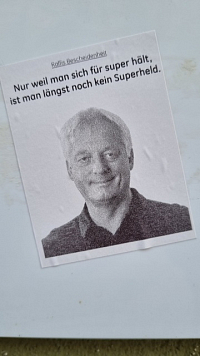 Kalles Bescheidenheit
Nur weil man sich für super hält,
ist man längst noch kein Superheld.